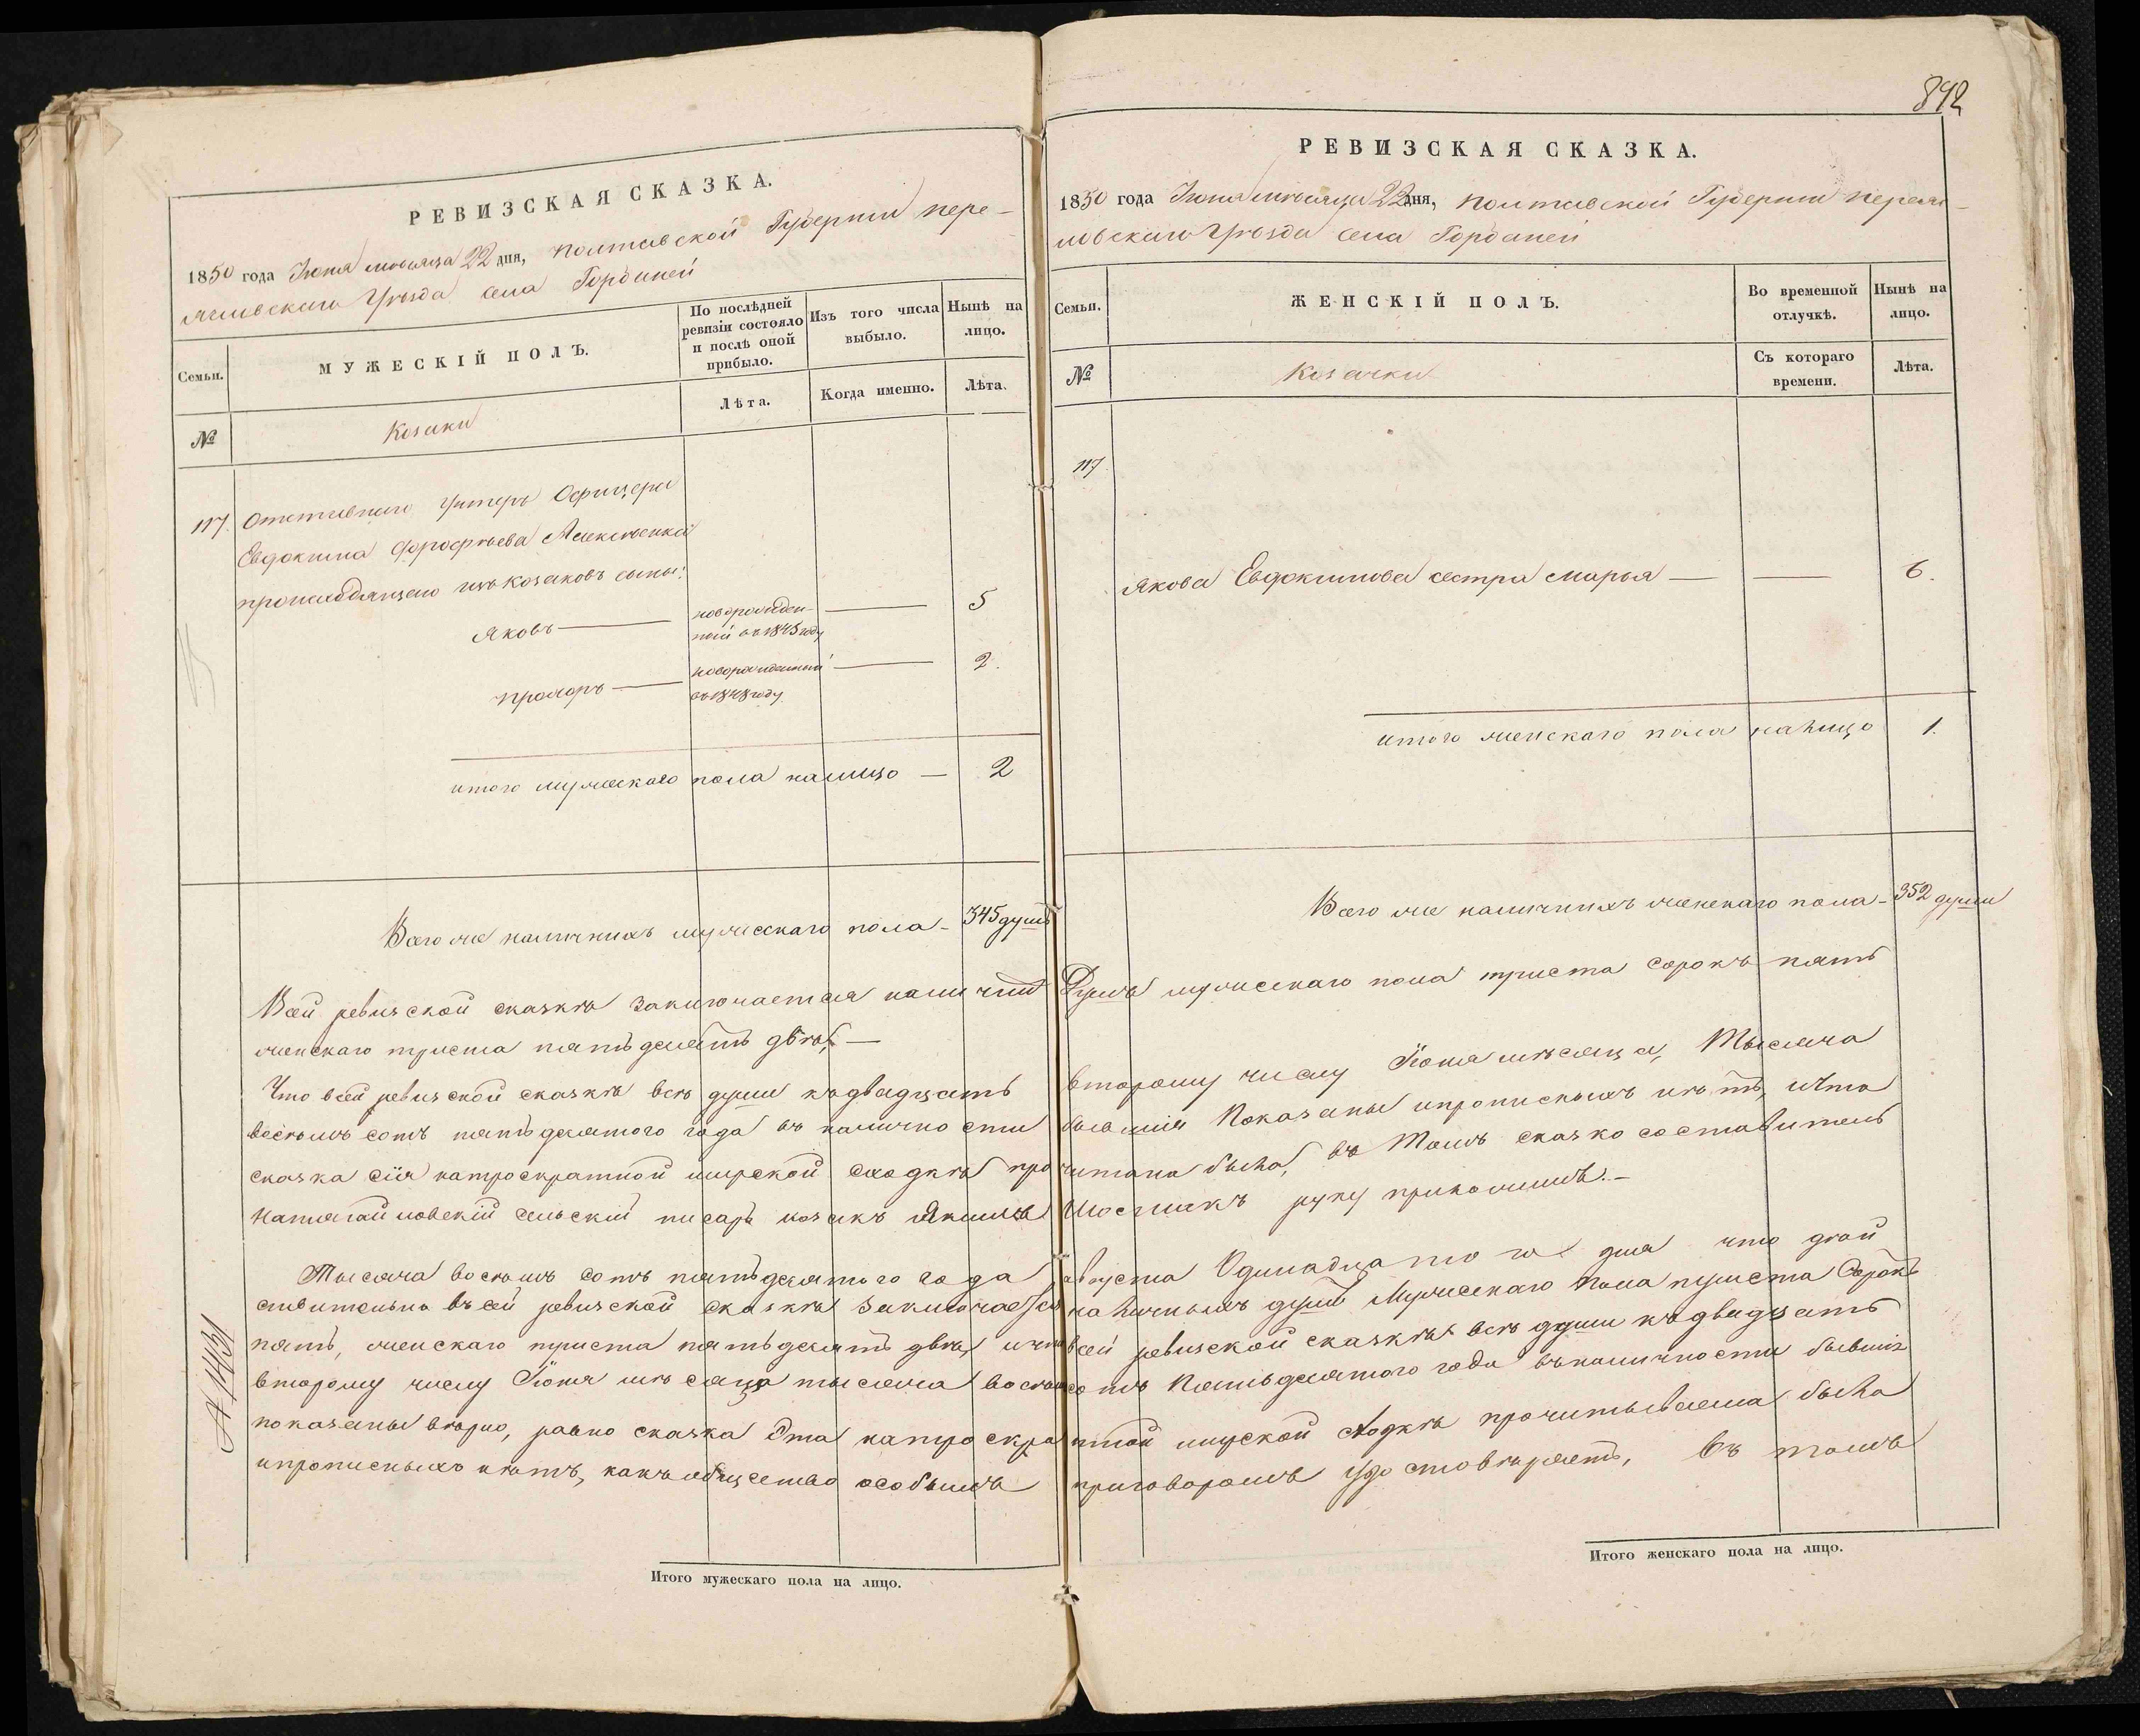 892
РЕВИЗСКАЯ СКАЗКА.
1850 года Іюня мѣсяца 22 дня, Полтавской Губерніи Пере-
яславскаго Уѣзда села Горбаней
Семьи.
МУЖЕСКІЙ ПОЛЪ.
По послѣдней ревизіи состояло и послѣ оной прибыло.
Изъ того числа выбыло.
Нынѣ на лицо.
№
Козаки
Лѣта.
Когда именно.
Лѣта.
117.
Отставнаго Унтеръ Офицера
Евдокима Дорофѣева Алексѣенка
происходящаго изъ козаковъ сыны:
Яковъ — новорожден-
ный въ 1845 году — 5
Прохоръ — новорожденный
въ 1848 году — 2.
итого мужескаго пола налицо — 2
Всего же наличныхъ мужескаго пола - 345 душъ
РЕВИЗСКАЯ СКАЗКА.
1850 года Іюня мѣсяца 22 дня, Полтавской Губерніи Переяс-
ловскаго Уѣзда села Горбаней
Семьи.
ЖЕНСКІЙ ПОЛЪ.
Во временной отлучкѣ.
Нынѣ на лицо.
№
Козачки
Съ котораго времени.
Лѣта.
117
Якова Евдокимова сестра Марья — — 6.
итого женскаго пола налицо 1.
Всего же наличныхъ женскаго пола - 352 души
Всей ревизской сказкѣ заключается наличныхъ Душъ мужескаго пола триста сорокъ пять
женскаго триста пятьдесятъ двѣ, —
Что всей ревизской сказкѣ всѣ души къ двадцать второму числу Іюня мѣсяца, Тысяча
восѣмъ сотъ пятьдесятого года въ наличности бывшія Показаны и прописныхъ нѣтъ, и что
сказка сія на троекратной мирской сходкѣ прочитана была, въ Томъ сказко составитель
сельскій писарь козакъ Якимъ руку приложилъ. —
Тысяча восѣмъ сотъ пятьдесятого года августа Одинадцатого дня что дѣй
ствительно въ сей ревизской сказкѣ заключается наличныхъ душъ Мужескаго Пола триста Сорокъ
пять, женскаго триста пятьдесятъ двѣ, и что всей ревизской сказкѣ всѣ души къ двадцать
второму числу Іюня мѣсяца тысяча восѣмъ сотъ Пятьдесятого года въ наличности бывшія
показаны вѣрно, равно сказка Эта на троекратной мирской сходкѣ прочитываема была
и прописныхъ нѣтъ, какъ и общество особымъ приговоромъ удостовѣряетъ, въ томъ
Итого мужескаго пола на лицо.
Итого женскаго пола на лицо.